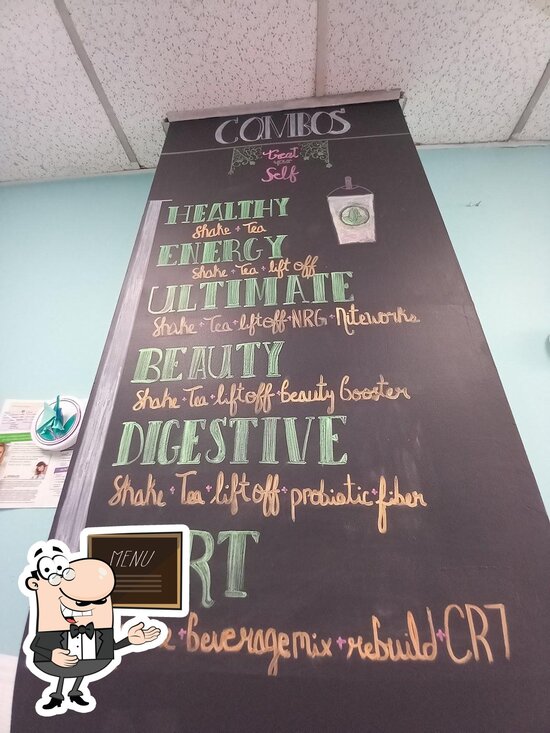 COMBOS
treat
your
Self
HEALTHY
Shake + Tea
ENERGY
Shake + Tea + lift off
ULTIMATE
Shake + Tea + liftoff + NRG + Niteworks
BEAUTY
Shake + Tea + liftoff + beauty booster
DIGESTIVE
Shake + Tea + liftoff + probiotic + fiber
MENU
RT
+ beverage mix + rebuild + CR7